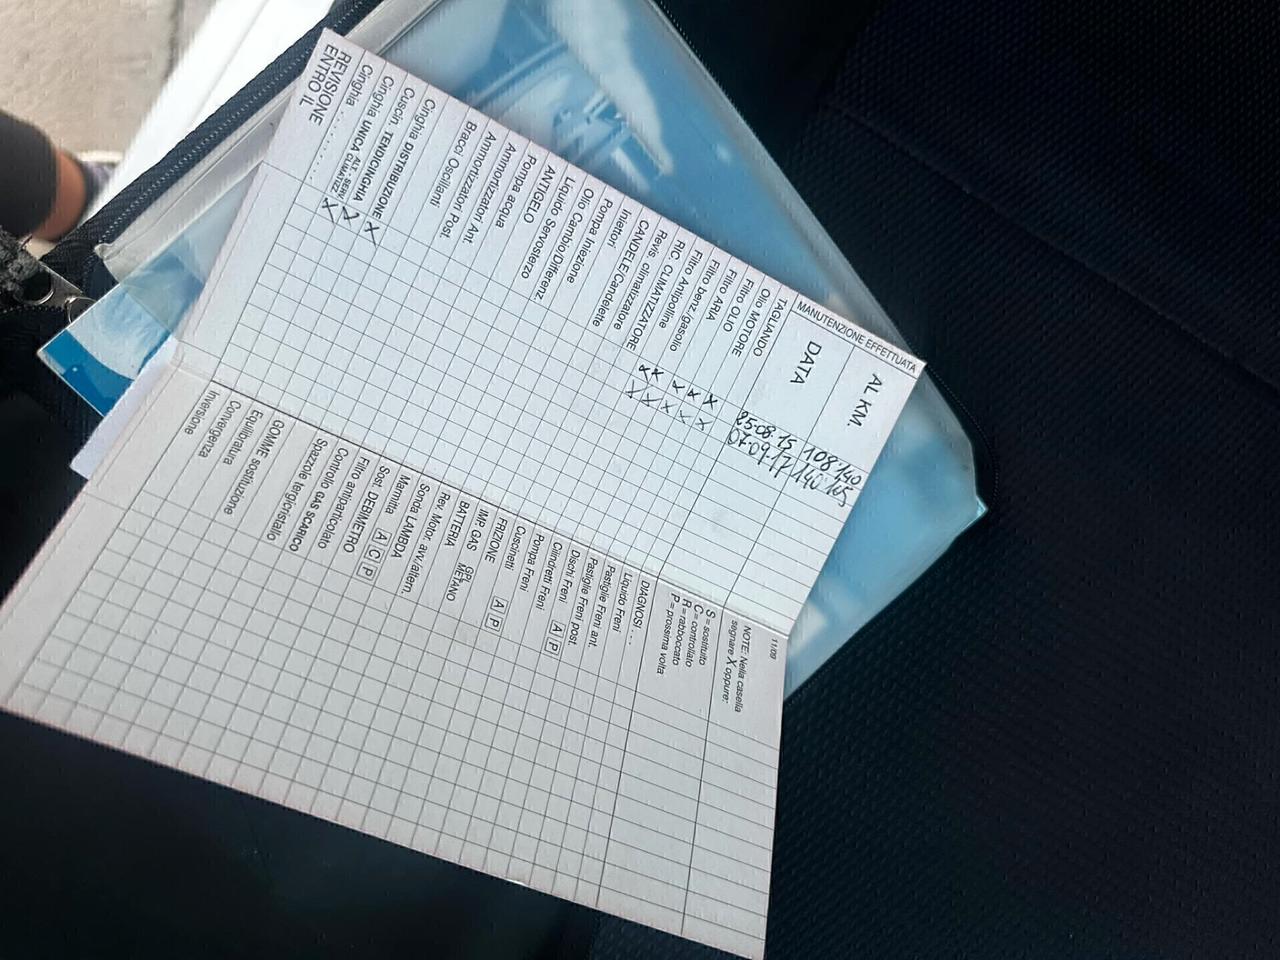 MANUTENZIONE EFFETTUATA
AL KM. 108140 140165
DATA 25.08.15 07.09.17
TAGLIANDO
Olio MOTORE X X
Filtro OLIO X X
Filtro ARIA X X
Filtro benz./gasolio X X
Filtro Antipolline X X
RIC. CLIMATIZZATORE
Revis. climatizzatore
CANDELE/Candelette
Iniettori
Pompa Iniezione
Olio Cambio/Differenz.
Liquido Servosterzo
ANTIGELO
Pompa acqua
Ammortizzatori Ant.
Ammortizzatori Post.
Bracci Oscillanti
Cinghia DISTRIBUZIONE X
Cuscin. TENDICINGHIA X
Cinghia UNICA ALT. SERV. CLIMATIZZ. X
Cinghia ..........
REVISIONE
ENTRO IL
11/09
NOTE: Nella casella
segnare X oppure:
S = sostituito
C = controllato
R = rabboccato
P = prossima volta
DIAGNOSI ....
Liquido Freni
Pastiglie Freni ant.
Pastiglie Freni post.
Dischi Freni A P
Cilindretti Freni
Pompa Freni
Cuscinetti A P
FRIZIONE
IMP. GAS GPL METANO
BATTERIA
Rev. Motor. avv./altern.
Sonda LAMBDA
Marmitta A C P
Sost. DEBIMETRO
Filtro antiparticolato
Controllo GAS SCARICO
Spazzole tergicristallo
GOMME sostituzione
Equilibratura
Convergenza
Inversione